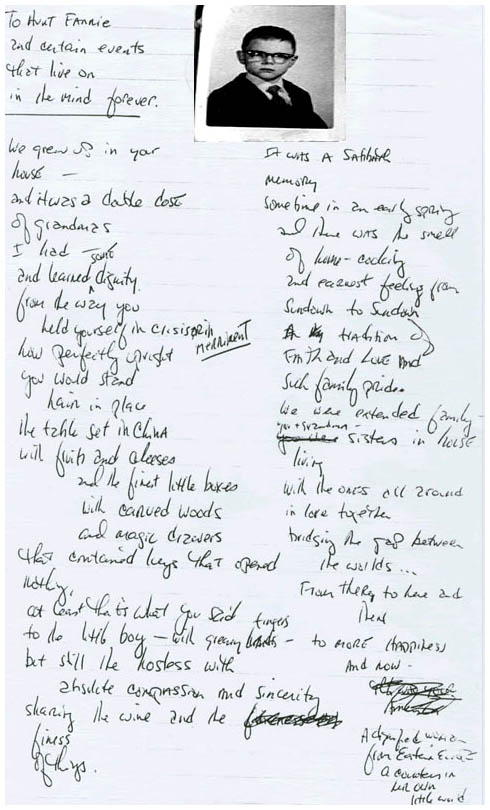 To Aunt Fannie
and certain events
that live on
in the mind forever.
We grew up in your
house —
and it was a double dose
of grandmas
I had some
and learned dignity
from the way you
held yourself in crisis or in merriment
how perfectly upright
you would stand
hair in place
the table set in China
with fruits and cheeses
and the finest little boxes
with carved woods
and magic drawers
that contained keys that opened
nothing,
at least that's what you said
to the little boy — with greasy fingers —
but still the hostess with
absolute compassion and sincerity
sharing the wine and the
fineness
of things.
It was a Sabbath
memory
Sometime in an early spring
and there was the smell
of home-cooking
and earnest feeling from
Sundown to Sundown
tradition of
Faith and Love and
such family pride.
We were extended family —
you + grandma —
sisters in house
living
with the ones all around
in love together
bridging the gap between
the worlds...
From there to here and
then
to more happiness
And now -
A dignified woman
from Eastern Europe
a countess in
her own
little world